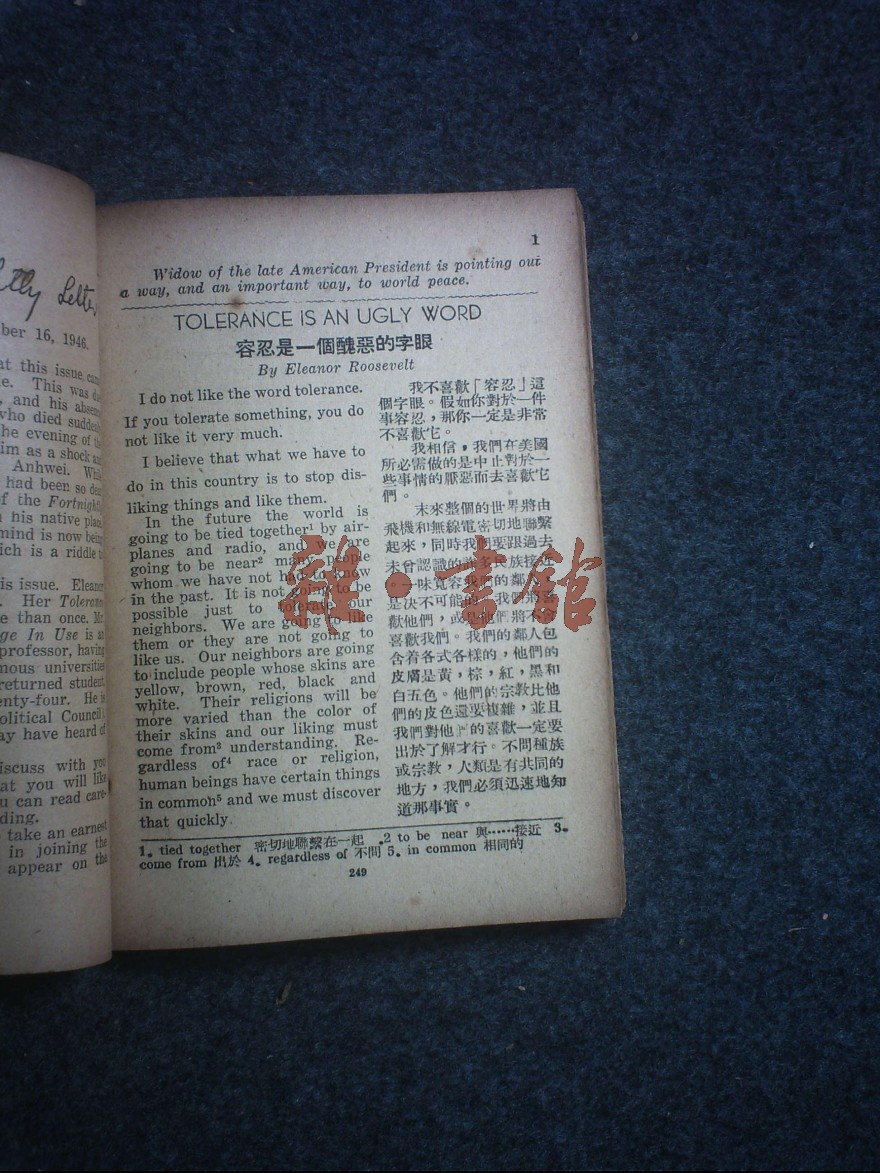 tly Letter
ber 16, 1946.
at this issue came
e. This was d
, and his absen
who died sudden
he evening of th
im as a shock an
Anhwei. Wh
had been so de
f the Fortnightly
n his native place
mind is now being
hich is a riddle to
his issue. Eleanor
. Her Tolerance
e than once. Mr.
ge In Use is an
professor, having
mous universities
returned student
enty-four. He is
olitical Council).
ay have heard of
iscuss with you
at you will like
u can read care-
ding.
take an earnest
in joining the
appear on the
1
Widow of the late American President is pointing out
a way, and an important way, to world peace.
TOLERANCE IS AN UGLY WORD
容忍是一個醜惡的字眼
By Eleanor Roosevelt
I do not like the word tolerance.
If you tolerate something, you do
not like it very much.
I believe that what we have to
do in this country is to stop dis-
liking things and like them.
In the future the world is
going to be tied together¹ by air-
planes and radio, and we are
going to be near² many people
whom we have not had to know
in the past. It is not going to be
possible just to tolerate our
neighbors. We are going to like
them or they are not going to
like us. Our neighbors are going
to include people whose skins are
yellow, brown, red, black and
white. Their religions will be
more varied than the color of
their skins and our liking must
come from³ understanding. Re-
gardless of⁴ race or religion,
human beings have certain things
in commoh⁵ and we must discover
that quickly.
我不喜歡「容忍」這
個字眼。假如你對於一件
事容忍，那你一定是非常
不喜歡它。
我相信，我們在美國
所必需做的是中止對於一
些事情的厭惡而去喜歡它
們。
末來整個的世界將由
飛機和無線電密切地聯繫
起來，同時我們要跟過去
未曾認識的許多民族接近
。一味寬容我們的鄰人
是決不可能的。我們將喜
歡他們，或是他們將不會
喜歡我們。我們的鄰人包
含着各式各樣的，他們的
皮膚是黃，棕，紅，黑和
白五色。他們的宗教比他
們的皮色還要複雜，並且
我們對他們的喜歡一定要
出於了解才行。不問種族
或宗教，人類是有共同的
地方，我們必須迅速地知
道那事實。
1. tied together 密切地聯繫在一起 .2 to be near 與……接近 3.
come from 出於 4. regardless of 不問 5. in common 相同的
249
雜·書館